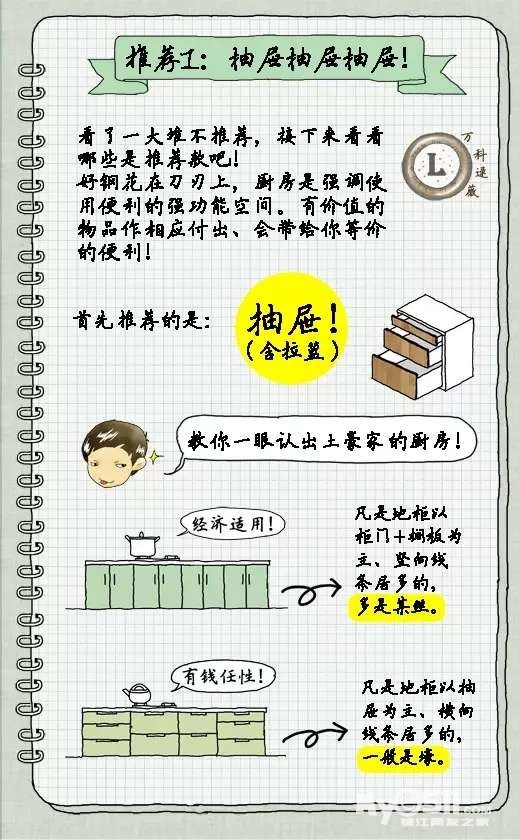 推荐1：抽屉抽屉抽屉！
看了一大堆不推荐，接下来看看
哪些是推荐款吧！
好钢花在刀刃上，厨房是强调使
用便利的强功能空间。有价值的
物品作相应付出、会带给你等价
的便利！
L
万科速微
首先推荐的是：
抽屉！
（含拉篮）
教你一眼认出土豪家的厨房！
经济适用！
凡是地柜以
柜门+搁板为
主、竖向线
条居多的，
多是某丝。
有钱任性！
凡是地柜以抽
屉为主、横向
线条居多的，
一般是壕。